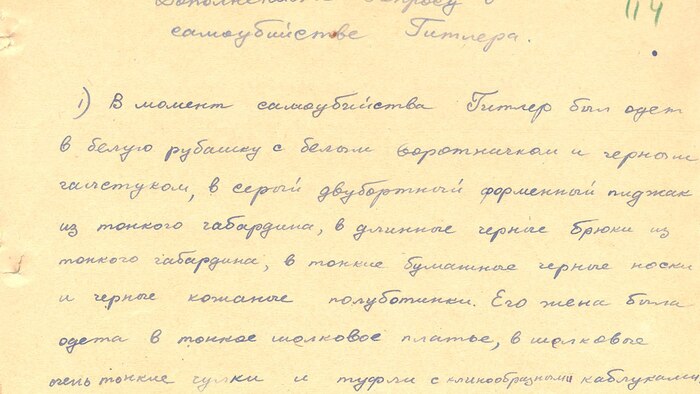 Дополнение к вопросу о
114
самоубийстве Гитлера.
1) В момент самоубийства Гитлер был одет
в белую рубашку с белым воротничком и черным
галстуком, в серый двубортный форменный пиджак
из тонкого габардина, в длинные черные брюки из
тонкого габардина, в тонкие бумажные черные носки
и черные кожаные полуботинки. Его жена была
одета в тонкое шелковое платье, в шелковые
очень тонкие чулки и туфли с клинообразными каблуками